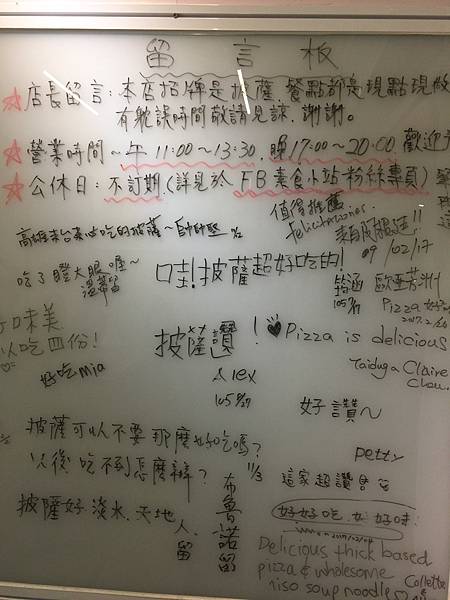 留言板
店長留言：本店招牌是披薩，餐點都是現點現做
有耽誤時間敬請見諒，謝謝。
營業時間~午11:00~13:30．晚17:00~20:00 歡迎
公休日：不訂期(詳見於FB素食小站粉絲專頁)
值得推薦
felicitaciones
09/02/17
吃了瞪大眼喔~
哇!披薩超好吃的!
歐亞芳洲
Pizza
口味美
以吃四份!
好吃mia
披薩讚!
Alex
105 8/27
Pizza is delicious
Claire
Chou
好讚~
petty
披薩可以不要那麼好吃嗎?
以後吃不到怎麼辦?
11/3
布魯諾留
這家超讚
好好吃 好好味
披薩好，淡水．天地
人．留
Delicious thick based
pizza & wholesome
miso soup noodle
Collette